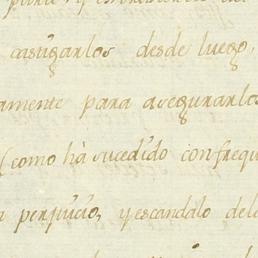 castigarlos desde luego,
amente para asegurarlos
(como há sucedido con frequ
perjuicio, y escandalo del